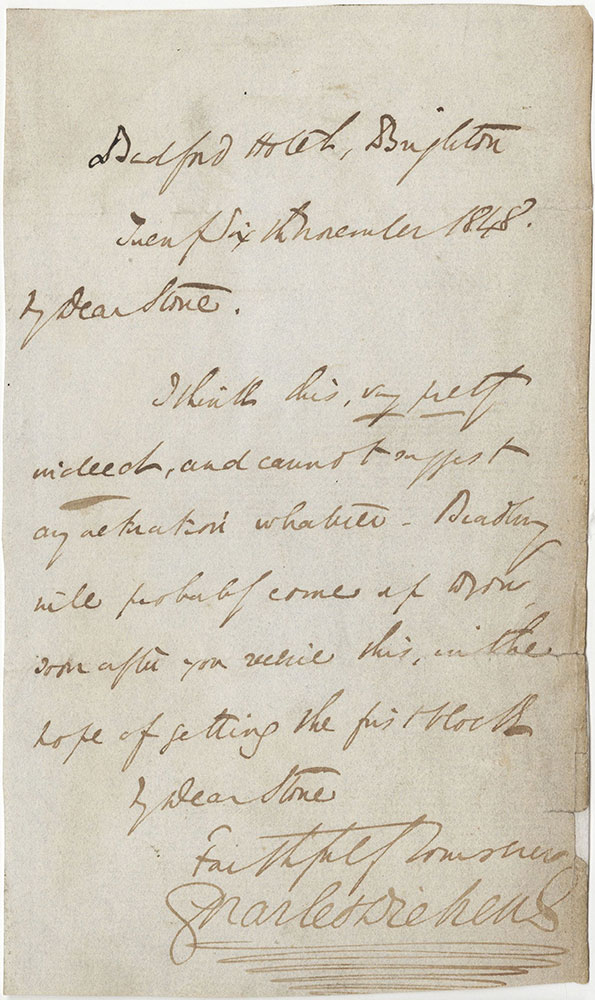 Bedford Hotel, Brighton
Twenty Sixth November 1848.
My Dear Stone.
I think this, very pretty
indeed, and cannot suggest
any alteration whatever - Bradbury
will probably come up
soon after you receive this, in the
hope of getting the first block
My Dear Stone
Faithfully Yours ever
Charles Dickens